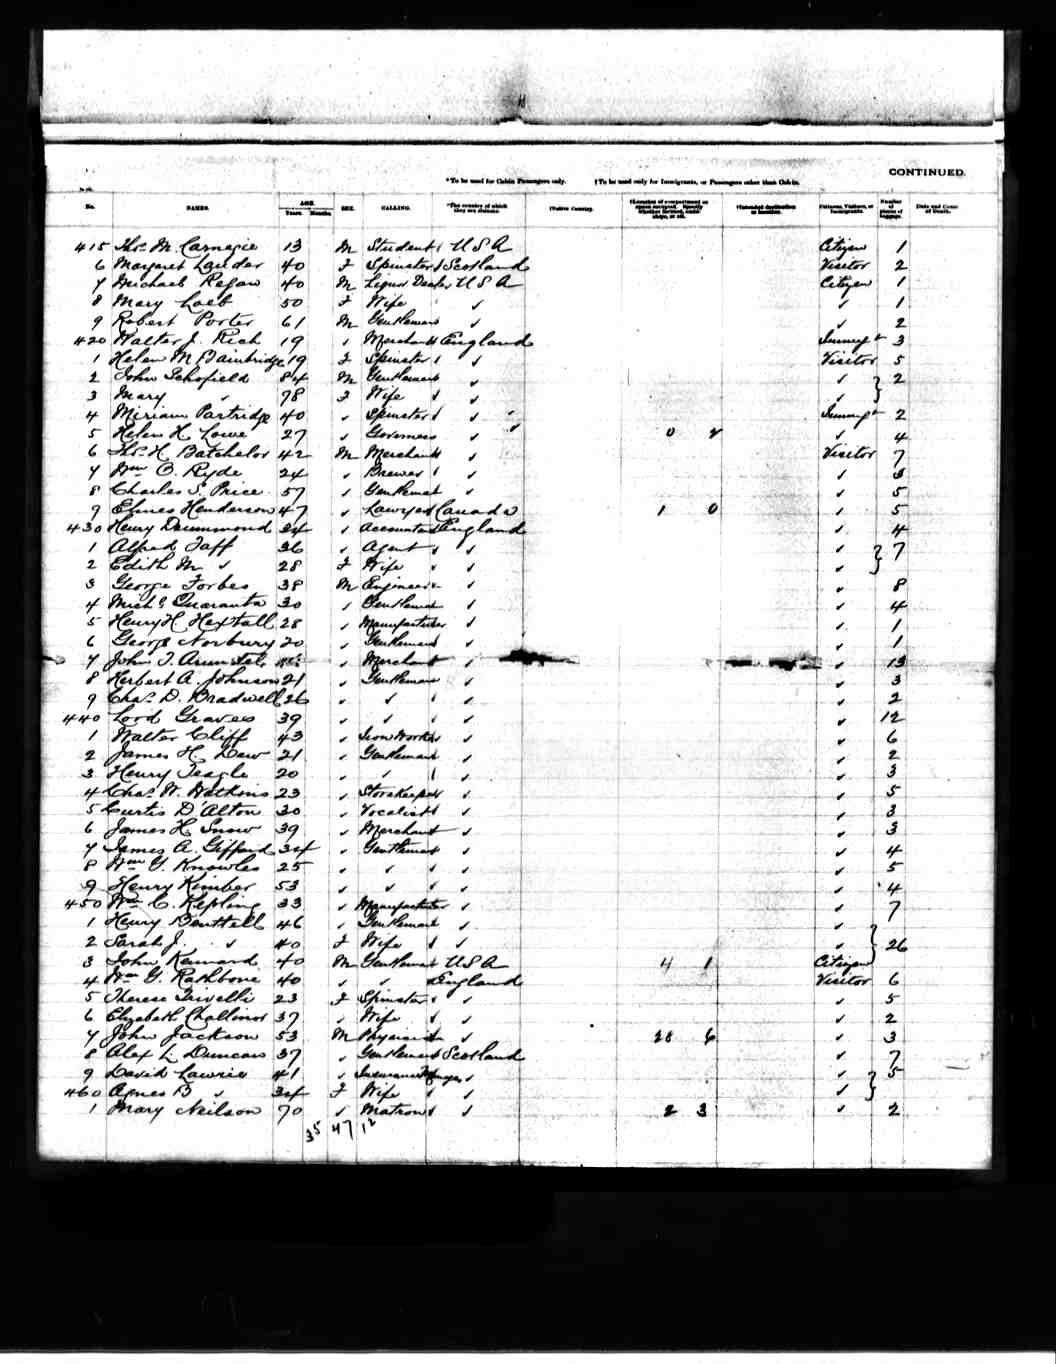 CONTINUED.
*To be used for Cabin Passengers only. †To be used only for Immigrants, or Passengers other than Cabin.
No. NAMES. AGE. Years. Months. SEX. CALLING. *The country of which they are citizens. †Native Country. †Intended destination or location. Citizens, Visitors, or Immigrants. Number of pieces of luggage. Date and Cause of Death.
415 Thos. M. Carnegie 13 M Student U S A Citizen 1
6 Margaret Lauder 40 F Spinster Scotland Visitor 2
7 Michael Regan 40 M Liquor Dealer U S A Citizen 1
8 Mary Loeb 50 F Wife ✓ ✓ 1
9 Robert Porter 61 M Gentleman ✓ ✓ 2
420 Walter J. Rich 19 ✓ Merchant England Immigt 3
1 Helen M Bainbridge 19 F Spinster ✓ Visitor 5
2 John Schofield 84 M Gentleman ✓ ✓ 2
3 Mary ✓ 78 F Wife ✓ ✓
4 Miriam Partridge 40 ✓ Spinster ✓ Immigt 2
5 Helen H. Lowe 27 ✓ Governess ✓ 0 ✓ 4
6 Thos. H. Batchelor 42 M Merchant ✓ Visitor 7
7 Wm O. Ryde 24 ✓ Brewer ✓ ✓
8 Charles S. Price 57 ✓ Gentleman ✓ ✓ 5
9 Henderson 47 ✓ Lawyer Canada 1 0 ✓ 5
430 Henry Drummond 34 ✓ Accountant England ✓ 4
1 Alfred Taff 36 ✓ Agent ✓ ✓ 7
2 Edith M ✓ 28 F Wife ✓ ✓
3 George Forbes 38 M Engineer ✓ ✓ 8
4 Michl. Quaranta 30 ✓ Gentleman ✓ ✓ 4
5 Henry H. Hextall 28 ✓ Manufacturer ✓ ✓ 1
6 George Norbury 20 ✓ Gentleman ✓ ✓ 1
7 John T. ✓ Merchant ✓ ✓ 13
8 Herbert A. Johnson 21 ✓ Gentleman ✓ ✓ 3
9 Chas. D. Bradwell 26 ✓ ✓ ✓ ✓ 2
440 Lord Graves 39 ✓ ✓ ✓ ✓ 12
1 Walter Cliff 43 ✓ Iron Worker ✓ ✓ 6
2 James H. Dew 21 ✓ Gentleman ✓ ✓ 2
3 Henry Teagle 20 ✓ ✓ ✓ ✓ 3
4 Chas. W. Watkins 23 ✓ Storekeeper ✓ ✓ 5
5 Curtis D'Alton 30 ✓ Vocalist ✓ ✓ 3
6 James H. Snow 39 ✓ Merchant ✓ ✓ 3
7 James A. Gifford 34 ✓ Gentleman ✓ ✓ 4
8 Wm Y. Knowles 25 ✓ ✓ ✓ ✓ 5
9 Henry Kimber 53 ✓ ✓ ✓ ✓ 4
450 Wm C. Kepling 33 ✓ Manufacturer ✓ ✓ 7
1 Henry Benttell 46 ✓ Gentleman ✓ ✓
2 Sarah J. ✓ 40 F Wife ✓ ✓ 26
3 John Kennard 40 M Gentleman U S A 4 1 Citizen
4 Wm G. Rathbone 40 ✓ ✓ England Visitor 6
5 Therese Trivelli 23 F Spinster ✓ ✓ 5
6 Elizabeth Challinor 37 ✓ Wife ✓ ✓ 2
7 John Jackson 53 M Physician ✓ 28 6 ✓ 3
8 Alex L. Duncan 37 ✓ Gentleman Scotland ✓ 7
9 David Lawrie 41 ✓ Insurance Manger ✓ ✓ 5
460 Agnes B ✓ 34 F Wife ✓ ✓
1 Mary Neilson 70 ✓ Matron ✓ 2 3 ✓ 2
35 47 12